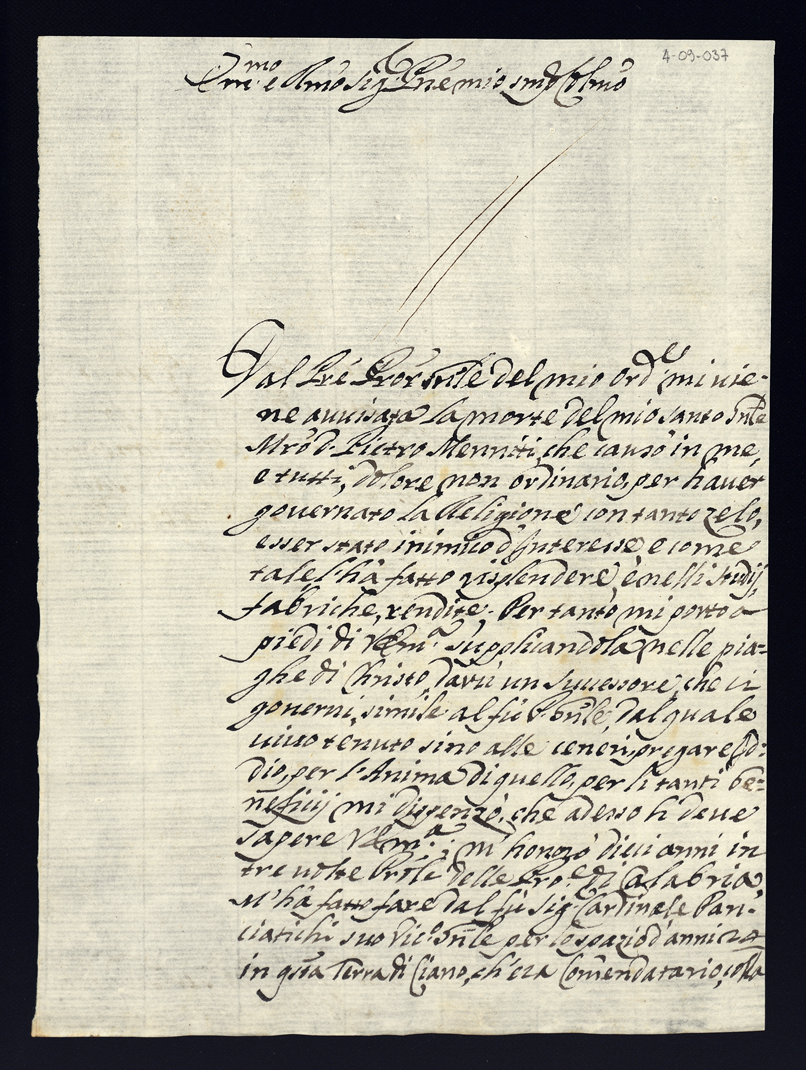 4-09-037
Em.mo e Rmo Sig.r Prne mio smo Colmo
Dal Pre Pror Gnle del mio ord.e mi vie-
ne avvisata la morte del mio santo Gnle
Mro d. Pietro Menniti, che causò in me,
e tutti, dolore non ordinario, per haver
governato la Religione con tanto zelo,
esser stato inimico d'Interesse, e come
tale l'hà fatto risplendere, è nelli studij,
fabriche, rendite. Per tanto mi porto a
piedi di VEm.a supplicandola nelle pia-
ghe di Christo, darci un successore, che ci
governi, simile al fù P. Gnle, dal quale
vivo tenuto sino alle ceneri, pregare Id-
dio, per l'Anima di quello, per li tanti be-
neficij mi dispenzò, che adesso li deve
sapere VEm.a; m'honorò dieci anni in
tre volte Prole delle Pro.e di Calabria
M'hà fatto fare dal fù Sig.r Cardinale Pan-
ciatichi suo Vic.o Gnle per lo spazio d'anni
in qsta Terra di Ciano, ch'era Comendatario, colla